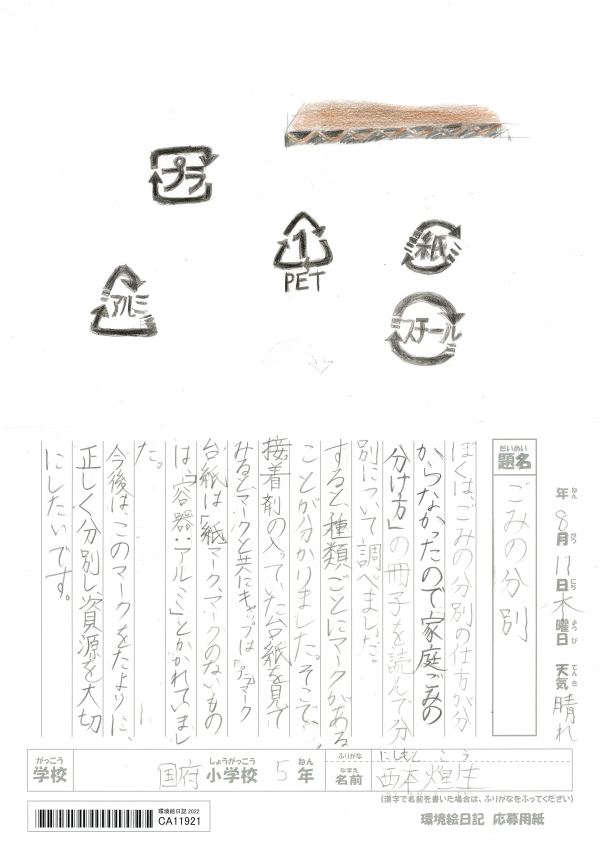 プラ
1
PET
紙
アルミ
スチール
年8月11日木曜日 天気晴れ
ねん がつ にち ようび てんき
だいめい
題名
ごみの分別
ぼくは、ごみの分別の仕方が分
からなかったので、家庭ごみの
分け方」の冊子を読んで分
別について調べました。
すると、種類ごとにマークがある
ことが分かりました。そこで、
接着剤の入っていた台紙を見て
みるとマークと共にキャップは「プラ」マーク
台紙は「紙」マーク、マークのないもの
は「容器:アルミ」とかかれていまし
た。
今後は、このマークをたよりに、
正しく分別し、資源を大切
にしたいです。
がっこう
学校
しょうがっこう ねん
国府小学校5年
ふりがな にしもと こう
なまえ
名前 西本 煌生
(漢字で名前を書いた場合は、ふりがなをふってください)
環境絵日記 2022
CA11921
環境絵日記 応募用紙